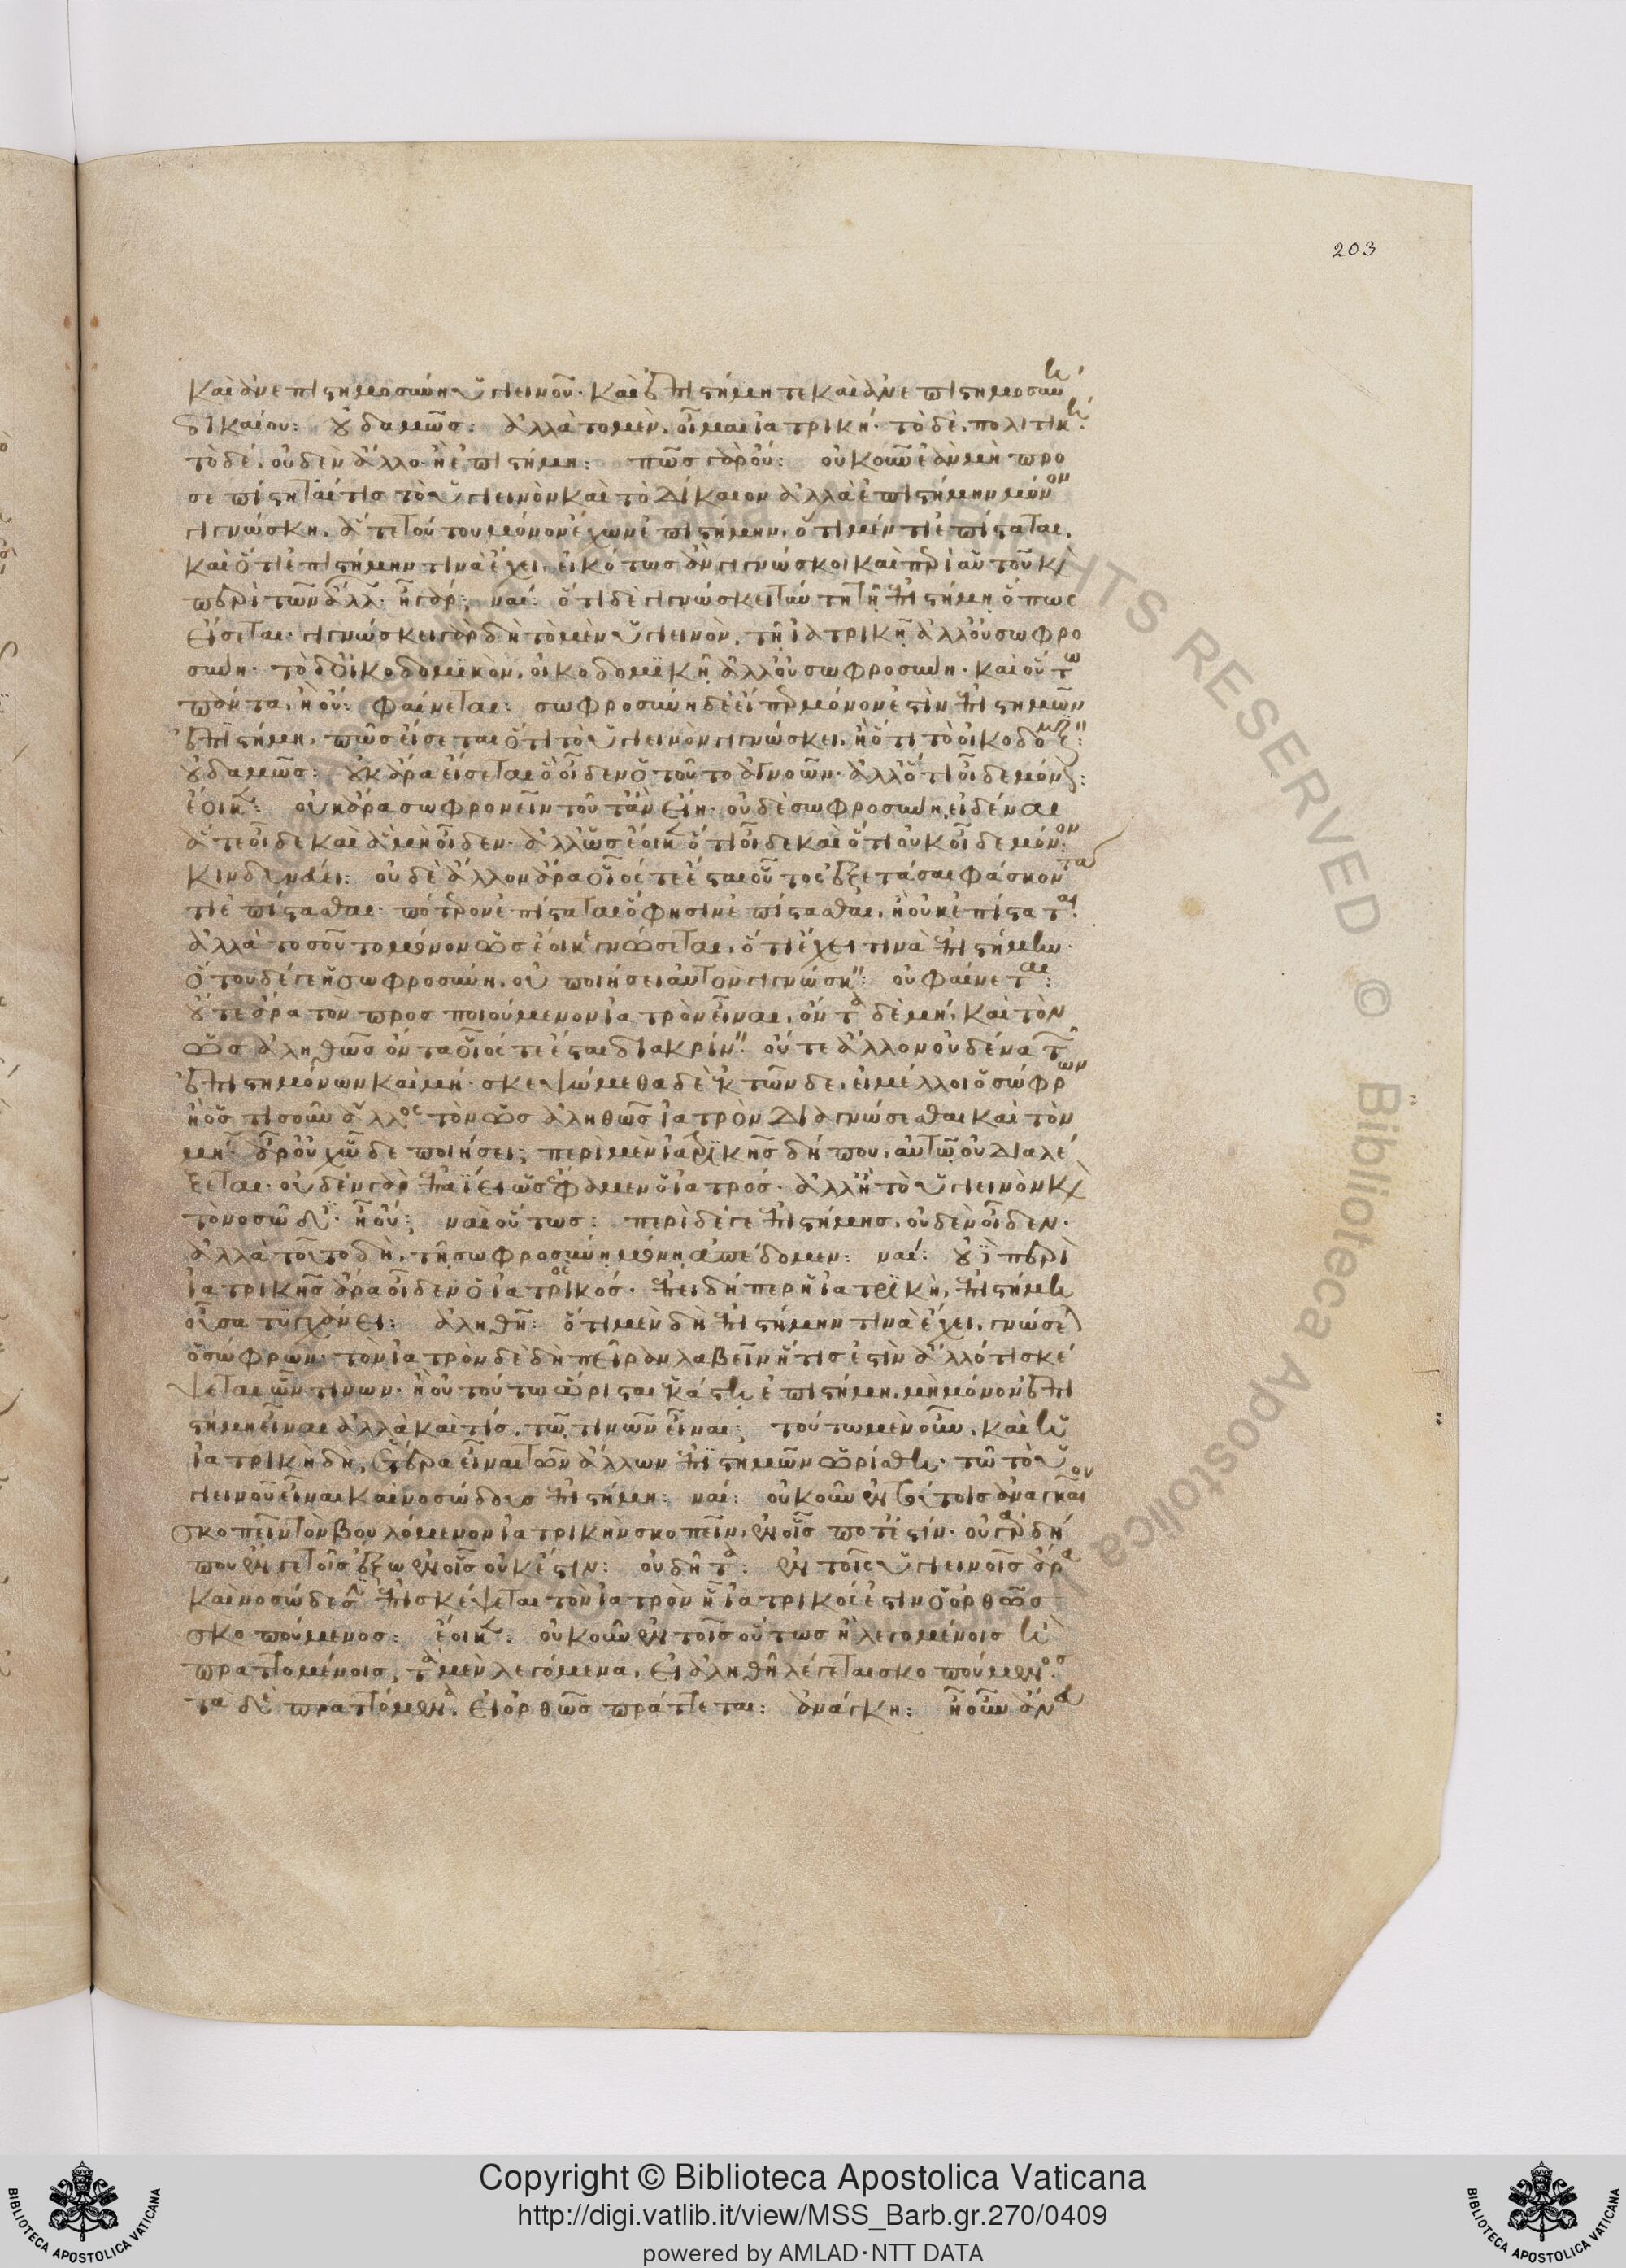 203
καὶ ἀνεπιστημοσύνη ὑγιεινοῦ· καὶ ἐπιστήμη τε καὶ ἀνεπιστημοσύνη
δικαίου: οὐδαμῶς: ἀλλὰ τὸ μὲν, οἶμαι ἰατρική· τὸ δὲ, πολιτική:
τὸ δέ, οὐδὲν ἄλλο ἢ ἐπιστήμη: πῶς γὰρ οὔ: οὐκοῦν ἐὰν μὴ προ
σεπίστηταί τις τὸ ὑγιεινὸν καὶ τὸ δίκαιον ἀλλὰ ἐπιστήμην μόνον
γιγνώσκη, ἅτε τούτου μόνον ἔχων ἐπιστήμην, ὅτι μέν τι ἐπίσταται,
καὶ ὅτι ἐπιστήμην τινὰ ἔχει, εἰκότως ἂν γιγνώσκοι καὶ περὶ αὑτοῦ καὶ
περὶ τῶν ἄλλων· ἦ γάρ; ναί: ὅτι δὲ γιγνώσκει ταύτῃ τῇ ἐπιστήμῃ ὅπως
εἴσεται· γιγνώσκει γὰρ δὴ τὸ μὲν ὑγιεινὸν, τῇ ἰατρικῇ ἀλλ' οὐ σωφρο
σύνῃ· τὸ δ' οἰκοδομικὸν, οἰκοδομικῇ ἀλλ' οὐ σωφροσύνῃ· καὶ οὕτω
πάντα, ἢ οὔ: φαίνεται: σωφροσύνη δὲ εἴπερ μόνον ἐστὶν ἐπιστημῶν
ἐπιστήμη, πῶς εἴσεται ὅτι τὸ ὑγιεινὸν γιγνώσκει, ἢ ὅτι τὸ οἰκοδομικόν:
οὐδαμῶς: οὐκ ἄρα εἴσεται ὃ οἶδεν ὁ τοῦτο ἀγνοῶν· ἀλλ' ὅτι οἶδε μόνον:
ἔοικεν: οὐκ ἄρα σωφρονεῖν τοῦτ' ἂν εἴη· οὐδὲ σωφροσύνη, εἰδέναι
ἅ τε οἶδε καὶ ἃ μὴ οἶδεν· ἀλλ' ὡς ἔοικεν ὅτι οἶδε καὶ ὅτι οὐκ οἶδε μόνον:
κινδυνεύει: οὐδὲ ἄλλον ἄρα οἷός τε ἔσται οὗτος ἐξετάσαι φάσκοντα
τι ἐπίστασθαι· πότερον ἐπίσταται ὅ φησιν ἐπίστασθαι, ἢ οὐκ ἐπίσταται·
ἀλλὰ τοσοῦτο μόνον ὡς ἔοικε γνώσεται, ὅτι ἔχει τινὰ ἐπιστήμην·
ὅτου δέ γε ἡ σωφροσύνη, οὐ ποιήσει αὐτὸν γιγνώσκειν: οὐ φαίνεται:
οὔτε ἄρα τὸν προσποιούμενον ἰατρὸν εἶναι, ὄντα δὲ μή, καὶ τὸν
ὡς ἀληθῶς ὄντα οἷός τε ἔσται διακρίνειν: οὔτε ἄλλον οὐδένα τῶν
ἐπιστημόνων καὶ μή· σκεψώμεθα δὲ ἐκ τῶνδε, εἰ μέλλοι ὁ σώφρων
ἢ ὁστισοῦν ἄλλος τὸν ὡς ἀληθῶς ἰατρὸν διαγνώσεσθαι καὶ τὸν
μή· ἆρ' οὐχ ὧδε ποιήσει; περὶ μὲν ἰατρικῆς δήπου, αὐτῷ οὐ διαλέ
ξεται· οὐδὲν γὰρ ἐπαΐει ὡς ἔφαμεν ὁ ἰατρός· ἀλλ' ἢ τὸ ὑγιεινὸν καὶ
τὸ νοσῶδες· ἢ οὔ; ναὶ οὕτως: περὶ δέ γε ἐπιστήμης, οὐδὲν οἶδεν·
ἀλλὰ τοῦτο δὴ, τῇ σωφροσύνῃ μόνῃ ἀπέδομεν: ναί: οὐδὲ περὶ
ἰατρικῆς ἄρα οἶδεν ὁ ἰατρικός· ἐπειδήπερ ἡ ἰατρικὴ, ἐπιστήμη
οὖσα τυγχάνει: ἀληθῆ: ὅτι μὲν δὴ ἐπιστήμην τινὰ ἔχει, γνώσεται
ὁ σώφρων· τὸν ἰατρὸν δὲ δὴ πεῖραν λαβεῖν ἥτις ἐστὶν ἄλλό τι σκέ
ψεται ὧντινων· ἢ οὐ τούτω ὥρισται ἑκάστη ἐπιστήμη, μὴ μόνον ἐπι
στήμη εἶναι ἀλλὰ καὶ τίς, τῷ τινῶν εἶναι; τούτω μὲν οὖν, καὶ ἡ
ἰατρικὴ δὴ, ἑτέρα εἶναι τῶν ἄλλων ἐπιστημῶν ὡρίσθη· τῷ τοῦ ὑ
γιεινοῦ εἶναι καὶ νοσώδους ἐπιστήμη: ναί: οὐκοῦν ἐν τούτοις ἀναγκαῖον
σκοπεῖν τὸν βουλόμενον ἰατρικὴν σκοπεῖν, ἐν οἷς ποτ' ἐστίν· οὐ γὰρ δή
που ἔν γε τοῖς ἔξω ἐν οἷς οὐκ ἔστιν: οὐ δῆτα: ἐν τοῖς ὑγιεινοῖς ἄρα
καὶ νοσώδεσιν ἐπισκέψεται τὸν ἰατρὸν ᾗ ἰατρικός ἐστιν ὁ ὀρθῶς
σκοπούμενος: ἔοικεν: οὐκοῦν ἐν τοῖς οὕτως ἢ λεγομένοις ἢ
πραττομένοις, τὰ μὲν λεγόμενα, εἰ ἀληθῆ λέγεται σκοπούμενος·
τὰ δὲ πραττόμενα, εἰ ὀρθῶς πράττεται: ἀνάγκη: ἦ οὖν ἄνευ
Copyright © Biblioteca Apostolica Vaticana
http://digi.vatlib.it/view/MSS_Barb.gr.270/0409
powered by AMLAD·NTT DATA
BIBLIOTECA APOSTOLICA VATICANA
BIBLIOTECA APOSTOLICA VATICANA